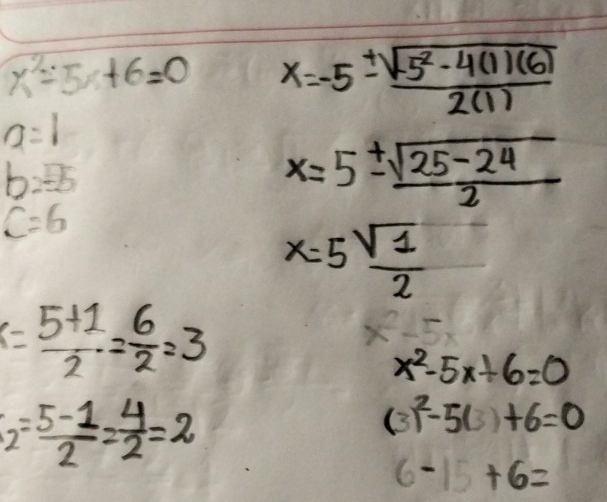 x²-5x+6=0
a=1
b=-5
c=6
x=-5 ±√-5²-4(1)(6)
2(1)
x=5 ±√25-24
2
x=5 √1
2
x= 5+1/2 = 6/2 = 3
x₂= 5-1/2 = 4/2 = 2
x²-5x
x²-5x+6=0
(3)²-5(3)+6=0
6-15+6=